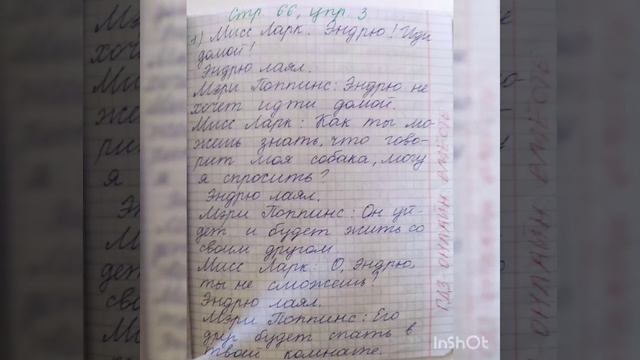 Стр. 66, упр. 3
1) Мисс Ларк. Эндрю! Иди
домой!
Эндрю лаял.
Мэри Поппинс: Эндрю не
хочет идти домой.
Мисс Ларк: Как ты мо-
жешь знать, что гово-
рит моя собака, могу
я спросить?
Эндрю лаял.
Мэри Поппинс: Он уй-
дет и будет жить со
своим другом.
Мисс Ларк: О, Эндрю,
ты не сможешь!
Эндрю лаял.
Мэри Поппинс: Его
друг будет спать в
твоей комнате.
ГДЗ ОНЛАЙН
InShOt